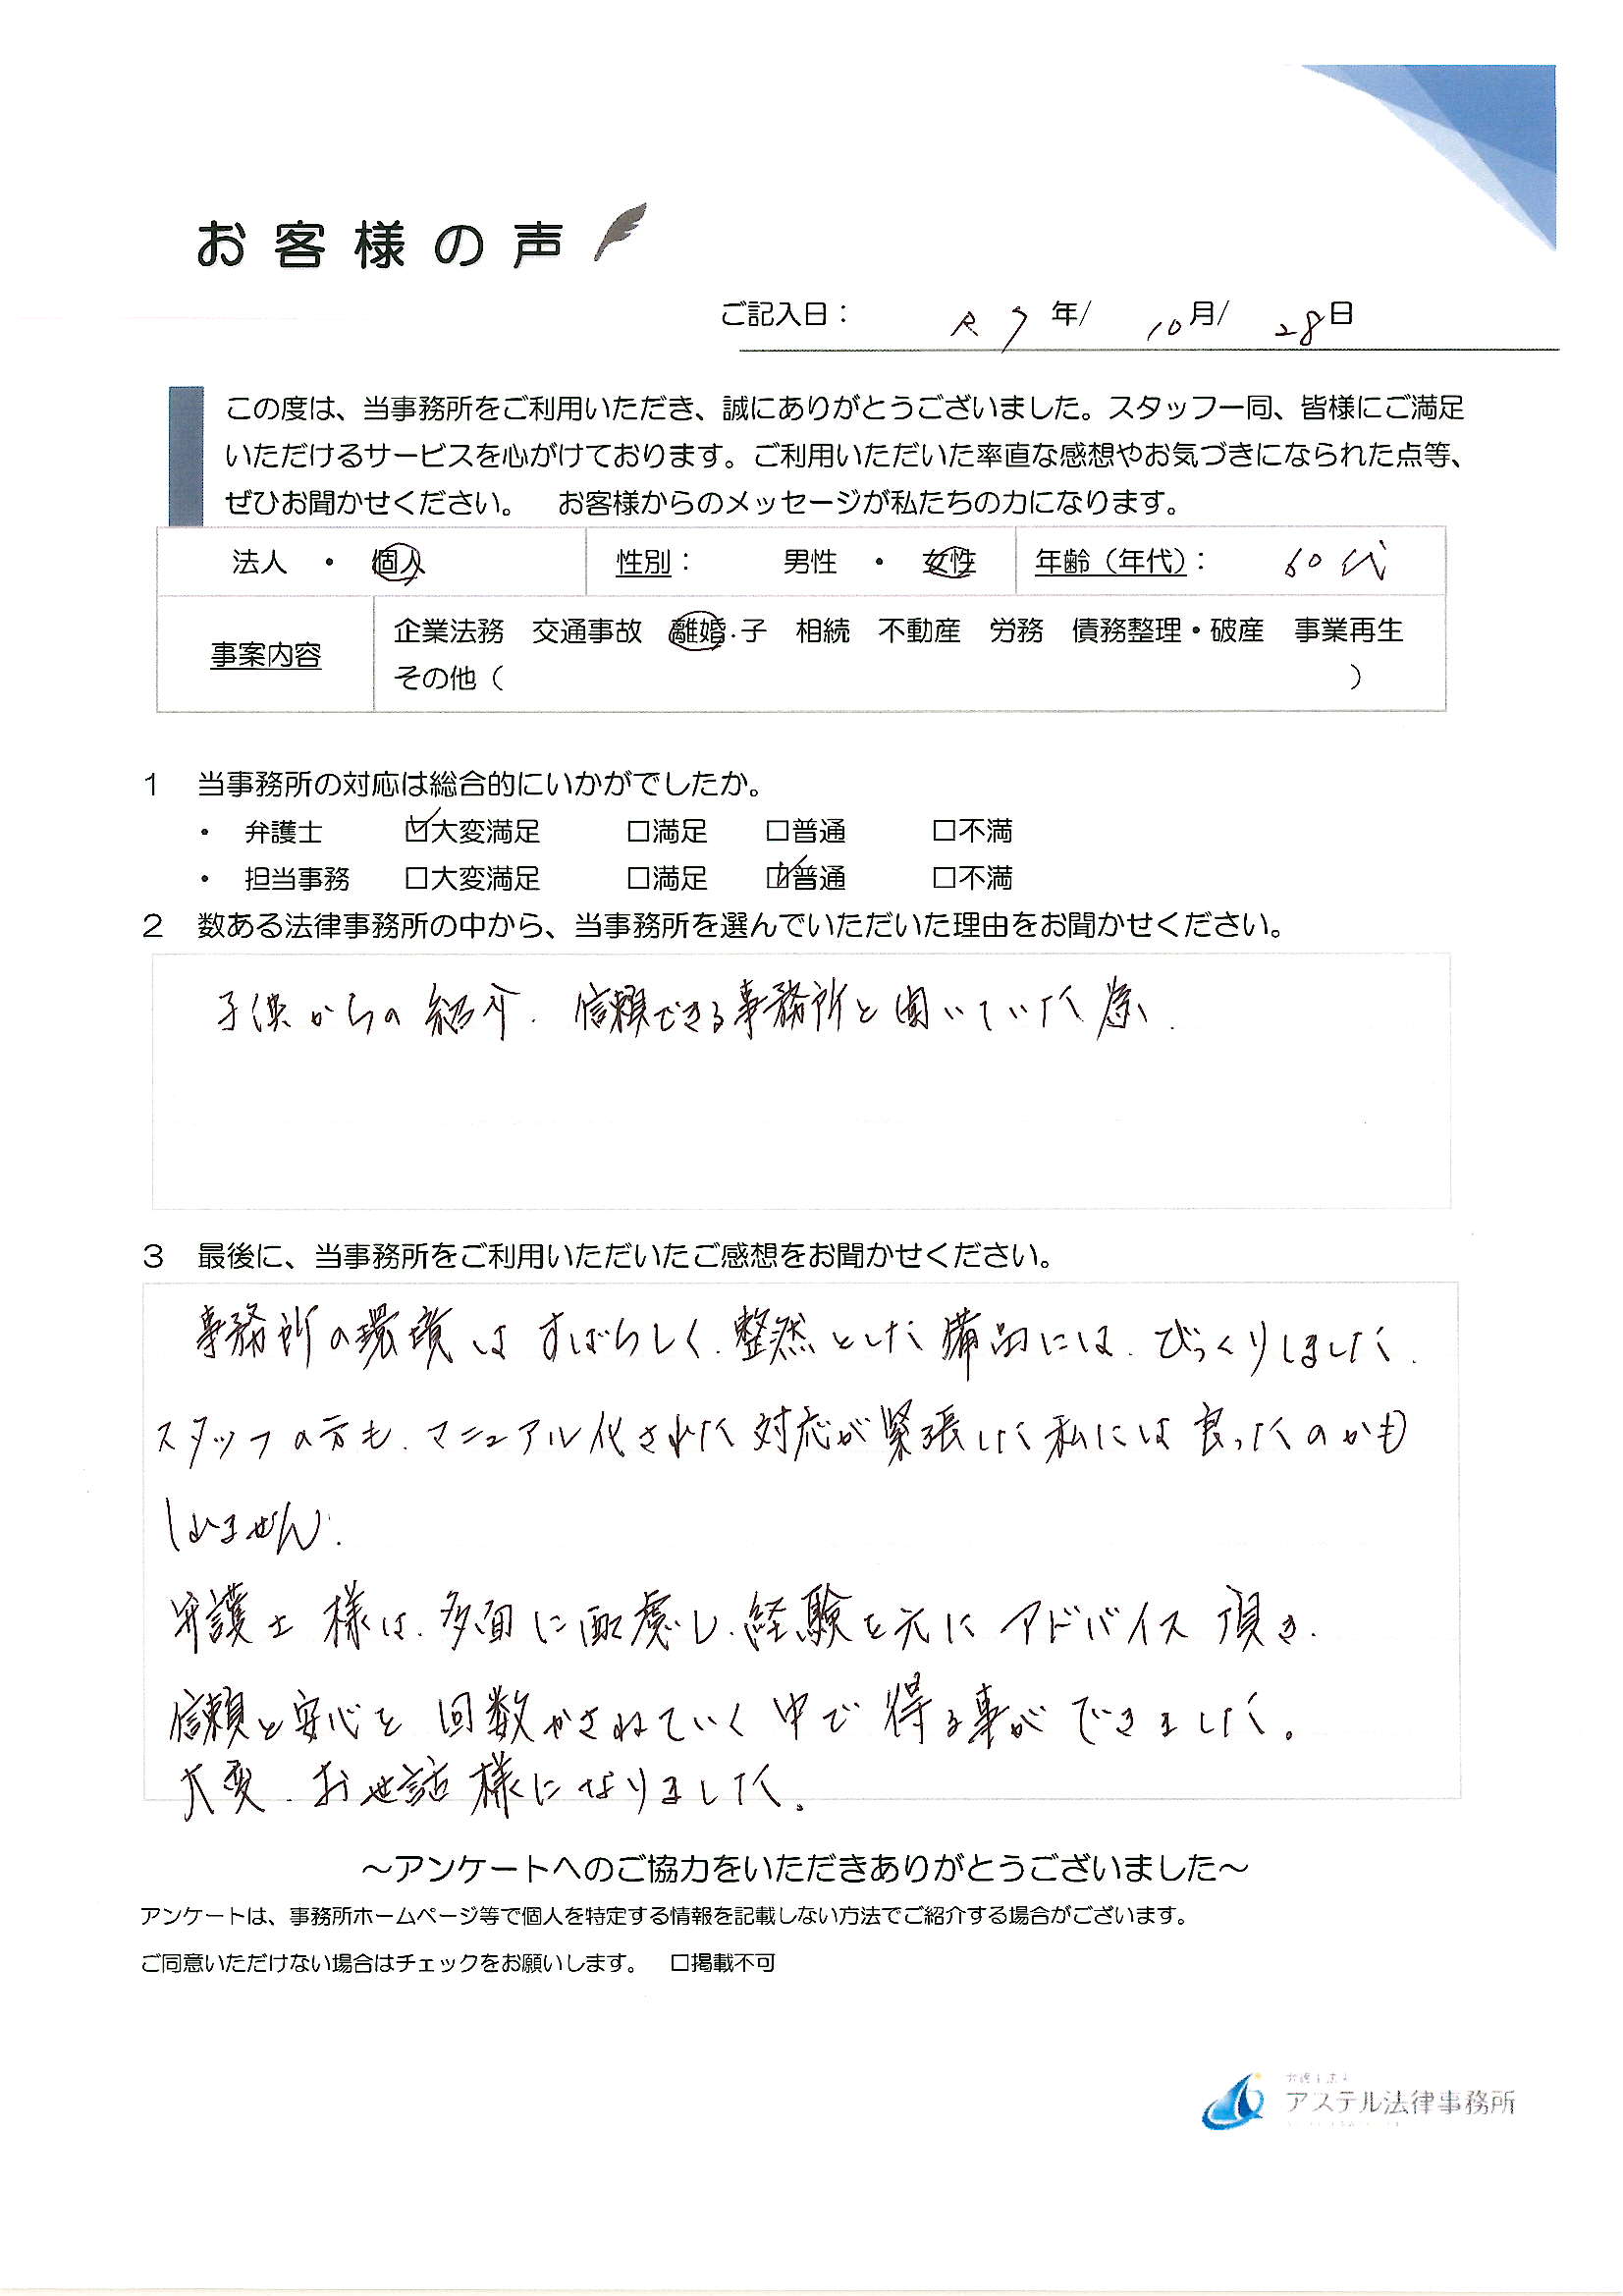 お客様の声
ご記入日： R7年/ 10月/ 28日
この度は、当事務所をご利用いただき、誠にありがとうございました。スタッフ一同、皆様にご満足
いただけるサービスを心がけております。ご利用いただいた率直な感想やお気づきになられた点等、
ぜひお聞かせください。　お客様からのメッセージが私たちの力になります。
法人 ・ 個人 性別： 男性 ・ 女性 年齢（年代）： 60代
企業法務 交通事故 離婚・子 相続 不動産 労務 債務整理・破産 事業再生
事案内容
その他（ ）
1 当事務所の対応は総合的にいかがでしたか。
・ 弁護士 ☑大変満足 □満足 □普通 □不満
・ 担当事務 □大変満足 □満足 ☑普通 □不満
2 数ある法律事務所の中から、当事務所を選んでいただいた理由をお聞かせください。
子供からの紹介．信頼できる事務所と聞いていた為．
3 最後に、当事務所をご利用いただいたご感想をお聞かせください。
事務所の環境はすばらしく．整然とした備品には．びっくりしました．
スタッフの方も．マニュアル化された対応が緊張した私には良ったのかも
しれません．
弁護士様は．多面に配慮し．経験を元にアドバイス頂き．
信頼と安心を回数かさねていく中で得る事ができました。
大変．お世話様になりました。
～アンケートへのご協力をいただきありがとうございました～
アンケートは、事務所ホームページ等で個人を特定する情報を記載しない方法でご紹介する場合がございます。
ご同意いただけない場合はチェックをお願いします。　□掲載不可
弁護士法人
アステル法律事務所